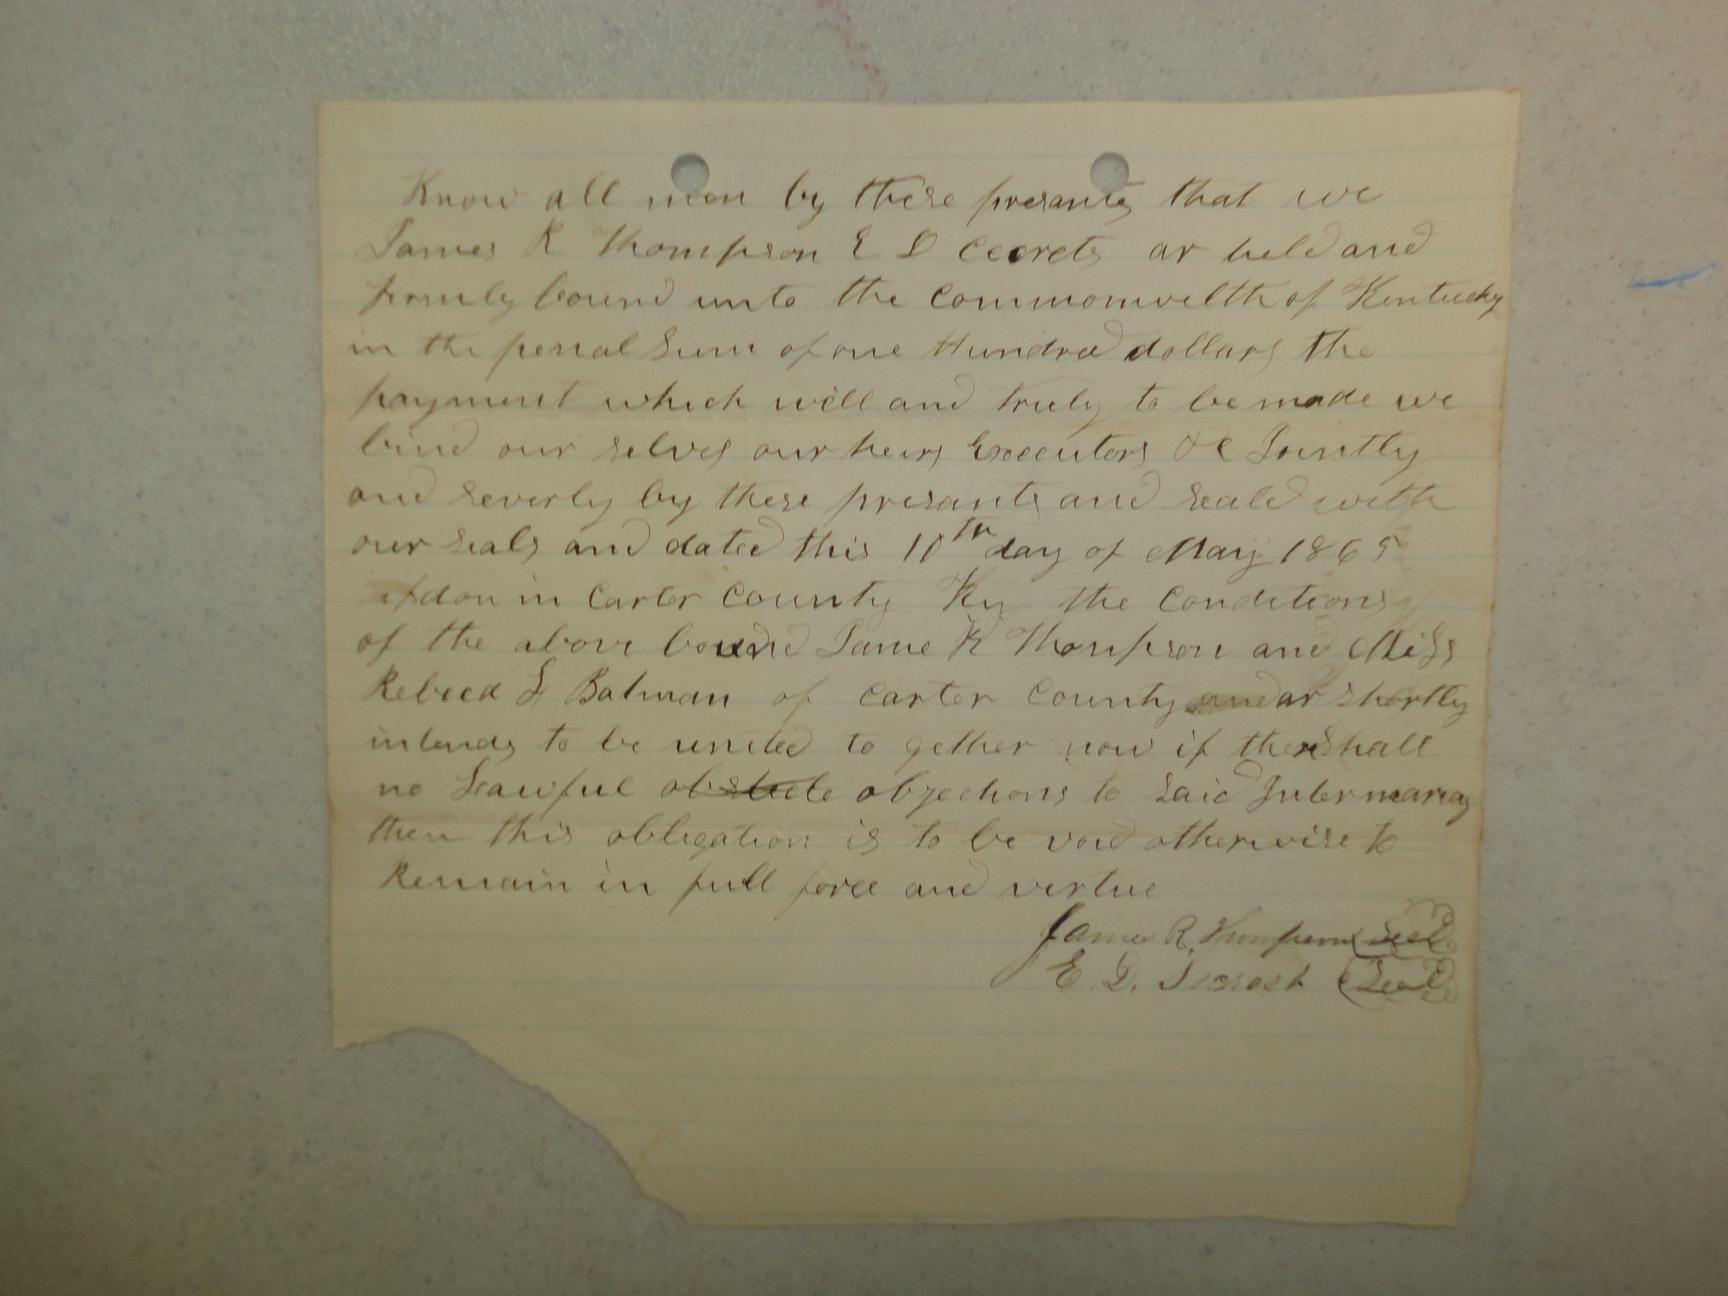 Know all men by these presants that we
James R Thompson E D Cecrets ar held and
firmly bound unto the commonwelth of Kentucky
in the penal sum of one Hundred dollars the
payment which will and truly to be made we
bind our selves our heirs Executors &C Jointly
and severly by these presants and seald with
our seals and dated this 10th day of May 1865
don in Carter County Ky the Conditions
of the above bound Jame R Thompson and Miss
Rebeca Batman of Carter County ar shortly
intends to be united to gether now if there shall
no Lawful obsticle objections to said Intermariag
then this obligation is to be void otherwise to
Remain in full force and vertue
James R. Thompson Seal
E. D. Secrest Seal